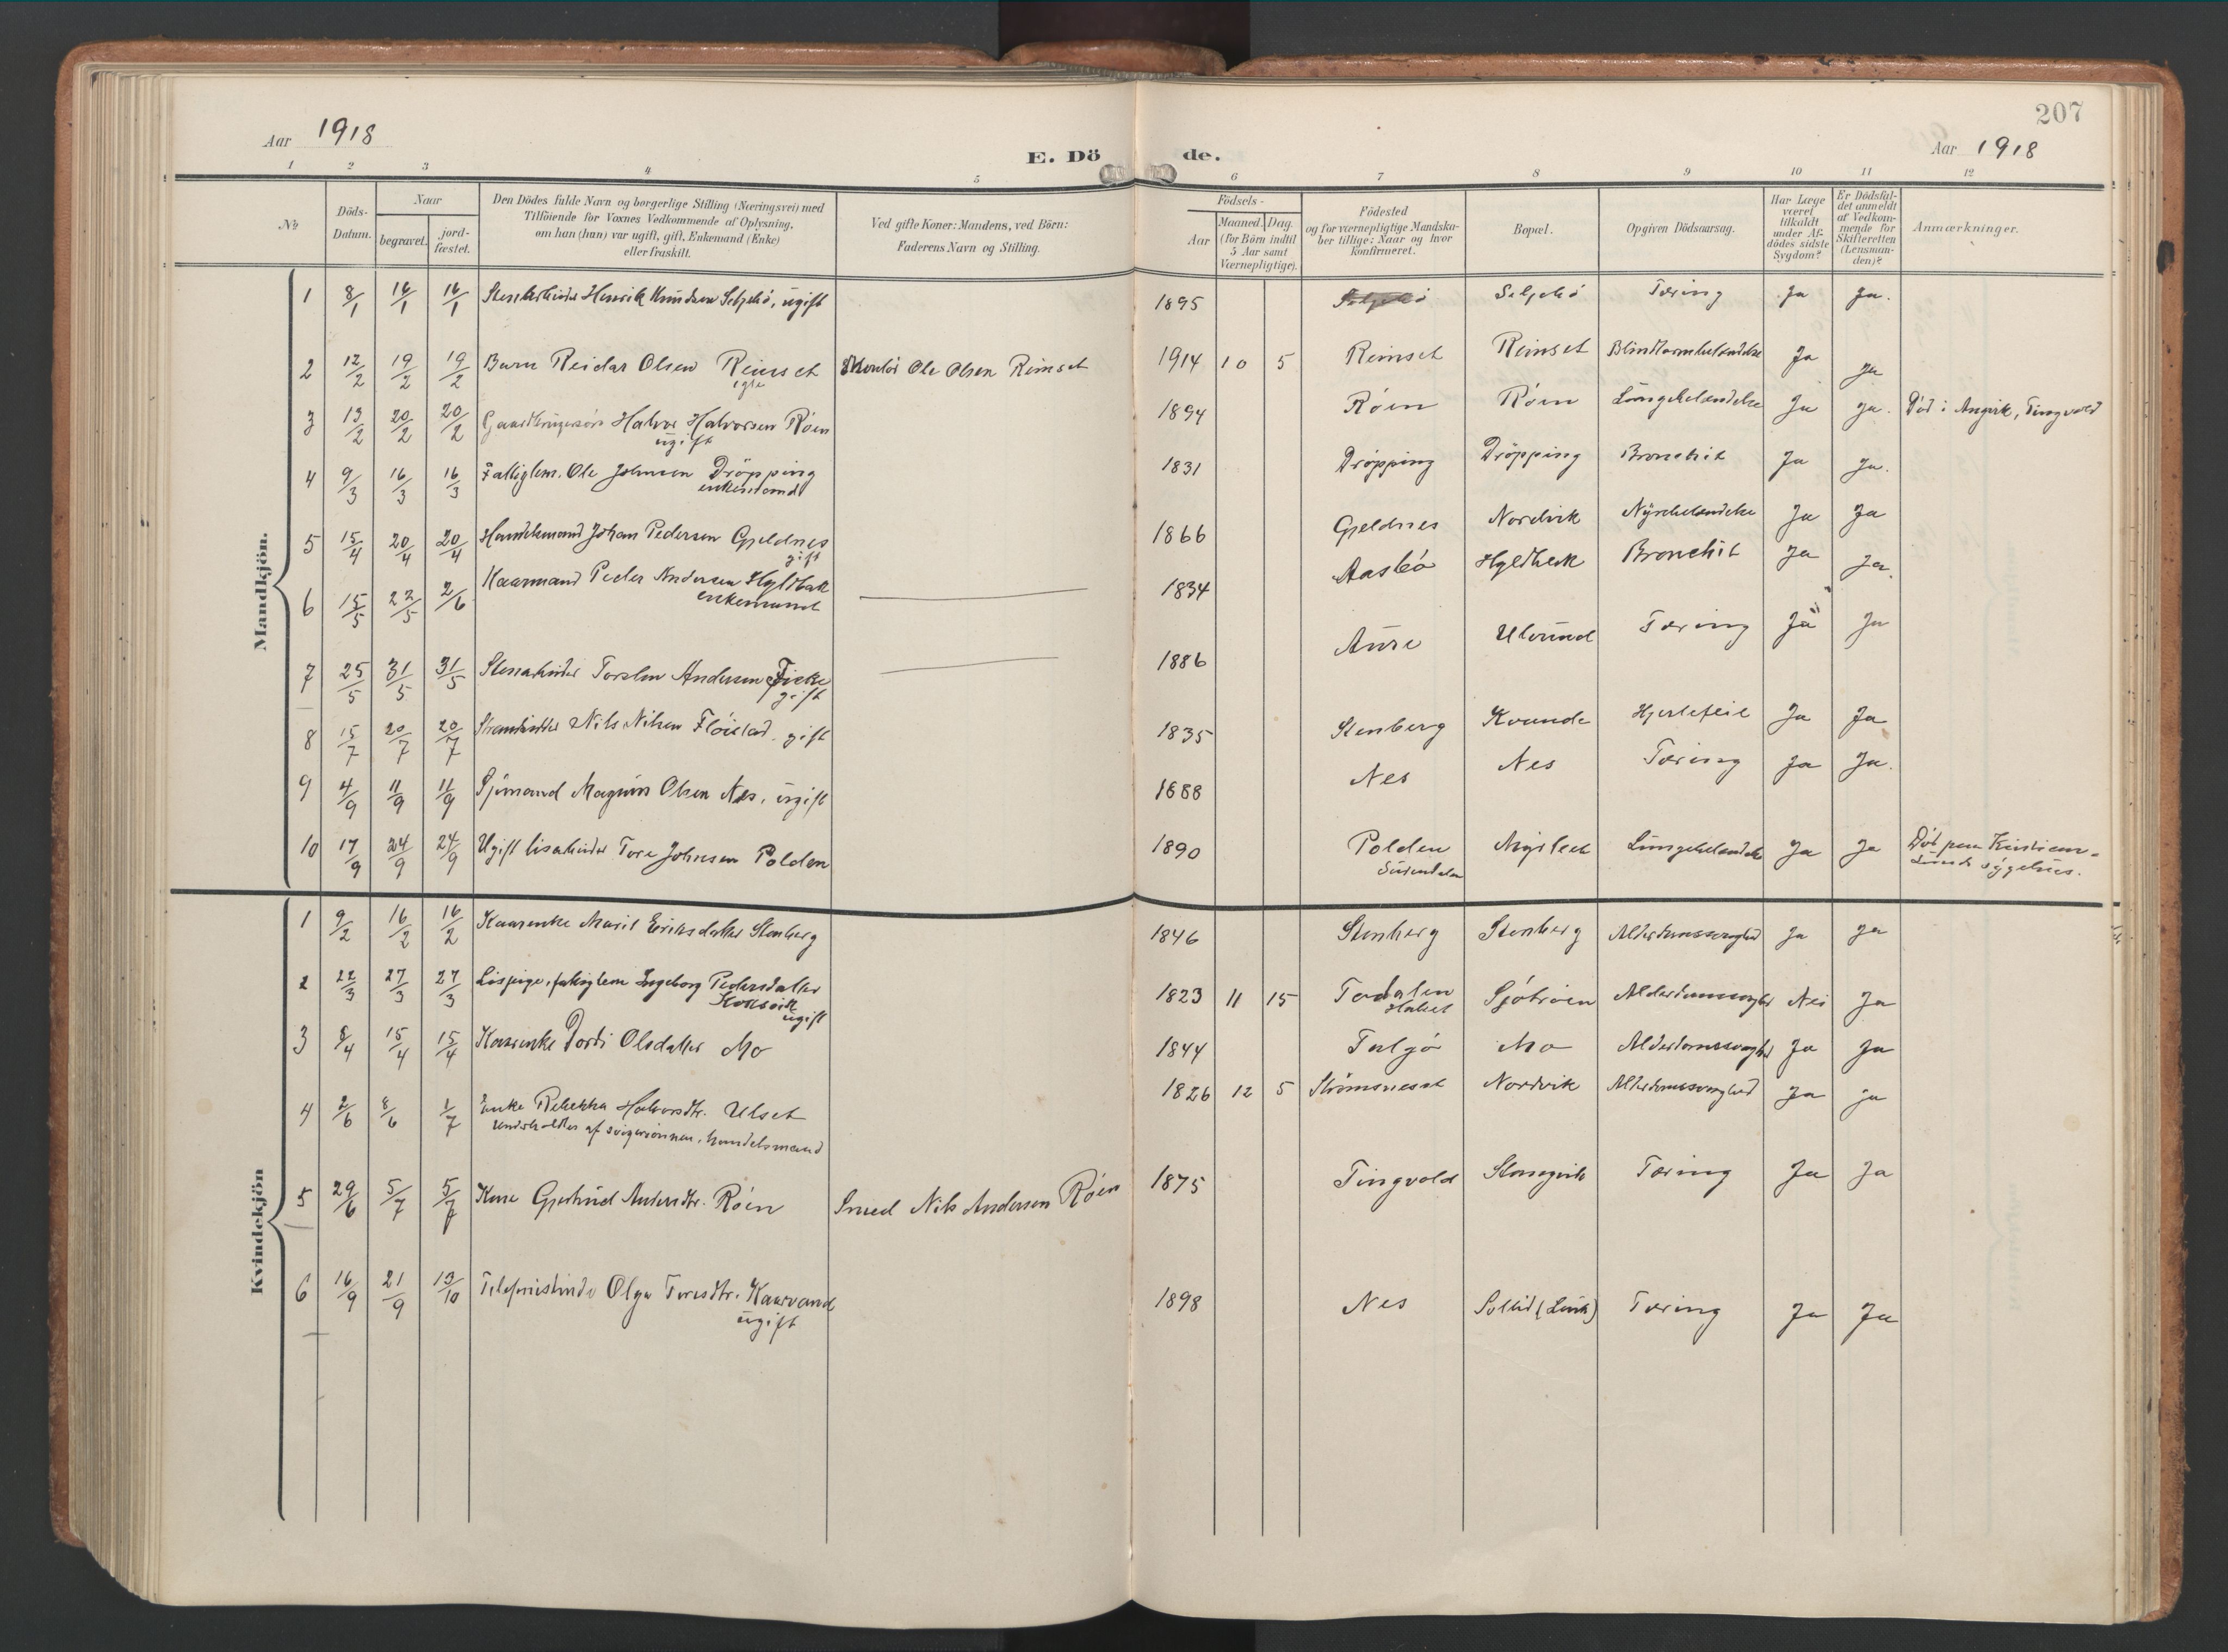 207
Aar 1918
E. Dö de.
Aar 1918
1 2 3 4 5 6 7 8 9 10 11 12
№
Döds-Datum.
Naar
begravet.
jord-fæstet.
Den Dödes fulde Navn og borgerlige Stilling (Næringsvei) med
Tilföiende for Voxnes Vedkommende af Oplysning,
om han (hun) var ugift, gift, Enkemand (Enke)
eller fraskilt.
Ved gifte Koner: Mandens, ved Börn:
Faderens Navn og Stilling.
Födsels-
Aar
Maaned. Dag.
(for Börn indtil
5 Aar samt
Værnepligtige).
Födested
og for værnepligtige Mandska-
ber tillige: Naar og hvor
konfirmeret.
Bopæl.
Opgiven Dödsaarsag.
Har Læge
været
tilkaldt
under Af-
dödes sidste
Sygdom?
Er Dödsfal-
det anmeldt
af Vedkom-
mende for
Skifteretten
(Lensman-
den)?
Anmærkninger.
Mandkjön.
1 8/1 16/1 16/1 Henrik Knudsen Seljebö, ugift 1895 Seljebö Tæring Ja Ja.
2 12/2 19/2 19/2 Barn Reidar Olsen Reinset Ole Olsen Reinset 1914 10 5 Reinset Reinset Blindtarmbetændelse Ja Ja
egte
3 13/2 20/2 20/2 Gaardbrugersön Halvor Halvorsen Röen 1894 Röen Röen Lungebetændelse Ja Ja. Död i Angvik, Tingvold
ugift
4 9/3 16/3 16/3 Fattiglem. Ole Johnsen Dröpping 1831 Dröpping Dröpping Bronchit Ja Ja.
enkemand
5 15/4 20/4 20/4 Handelsmand Johan Pedersen Gjeldnes 1866 Gjeldnes Nordvik Nyrebetændelse Ja Ja
gift
6 15/5 22/5 2/6 Kaarmand Peder Andersen Hyldbak 1834 Aasbö Hyldbak Bronchit Ja Ja.
enkemand
7 25/5 31/5 31/5 Stenarbeider Andersen 1886 Aure Ulvund Tæring Ja Ja
gift
8 15/7 20/7 20/7 Strandsidder Nils Nilsen Flöistad. gift 1835 Stenberg Kvande Hjertefeil Ja Ja
9 4/9 11/9 11/9 Sjömand Magnus Olsen Nes, ugift 1888 Nes Nes Tæring Ja Ja.
10 17/9 24/9 24/9 Ugift Tore Johnsen Polden 1890 Polden Lungebetændelse Ja Ja Död paa Kristian-
Surendalen sunds sygehus.
Kvindekjön
1 9/2 16/2 16/2 Kaarenke Marit Eriksdatter Stenberg 1846 Stenberg Stenberg Alderdomssvaghed Ja Ja
2 22/3 27/3 27/3 fattiglem Ingeborg Pedersdatter 1823 11 15 Todalen Alderdomssvaghed Nei Ja
ugift
3 8/4 15/4 15/4 Kaarenke Dordi Olsdatter Mo 1844 Talgö Mo Alderdomssvaghed Ja Ja
4 2/6 8/6 1/7 Enke Rebekka Halvorsdtr. Ulset 1826 12 5 Strömsneset Nordvik Alderdomssvaghed Ja ja
underholdtes af svigersönnen, handelsmand
5 29/6 5/7 5/7 Kone Gjertrud Andersdtr. Röen Smed Nils Andersen Röen 1875 Tingvold Stangvik Tæring Ja Ja
6 16/9 21/9 13/10 Telefonistinde Olga Toresdtr. Kaarvand 1898 Nes Tæring Ja Ja
ugift